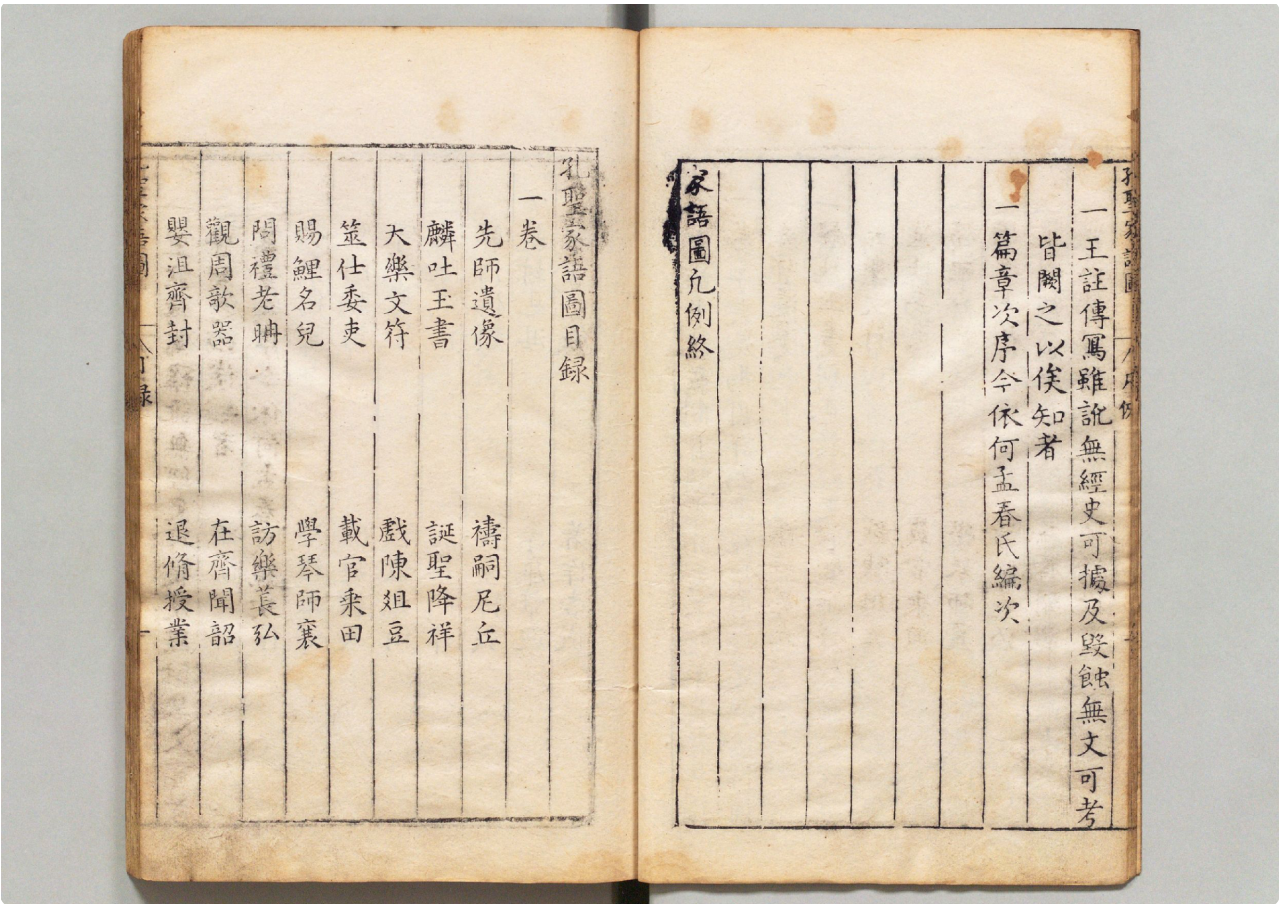 孔聖家語圖 凡例
一王註傳寫雖訛無經史可據及毀蝕無文可考
皆闕之以俟知者
一篇章次序今依何孟春氏編次
家語圖凡例終
孔聖家語圖目録
一卷
先師遺像 禱嗣尼丘
麟吐玉書 誕聖降祥
大樂文符 戲陳爼豆
筮仕委吏 載官乘田
賜鯉名兒 學琴師襄
問禮老聃 訪樂萇弘
觀周欹器 在齊聞韶
嬰沮齊封 退脩授業
目録 一